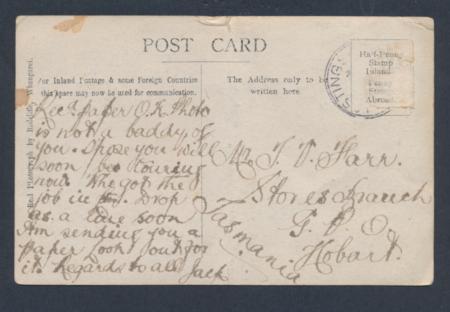 POST CARD
For Inland Postage & some Foreign Countries
this space may now be used for communication.
The Address only to be
written here.
Half-Penny
Stamp
Inland
Penny
Stamp
Abroad.
STINGS
Real Photograph by Radcliffe, Whangarei.
Recd paper O.K. Photo
is not a baddy of
you. Spose you will
soon be touring
now. Who got the
job in Drop
us a line soon
Am sending you a
paper look out for
it. Regards to all
Jack
Mr J. V. Farr.
Stores Branch
G. P. O.
Hobart.
Tasmania